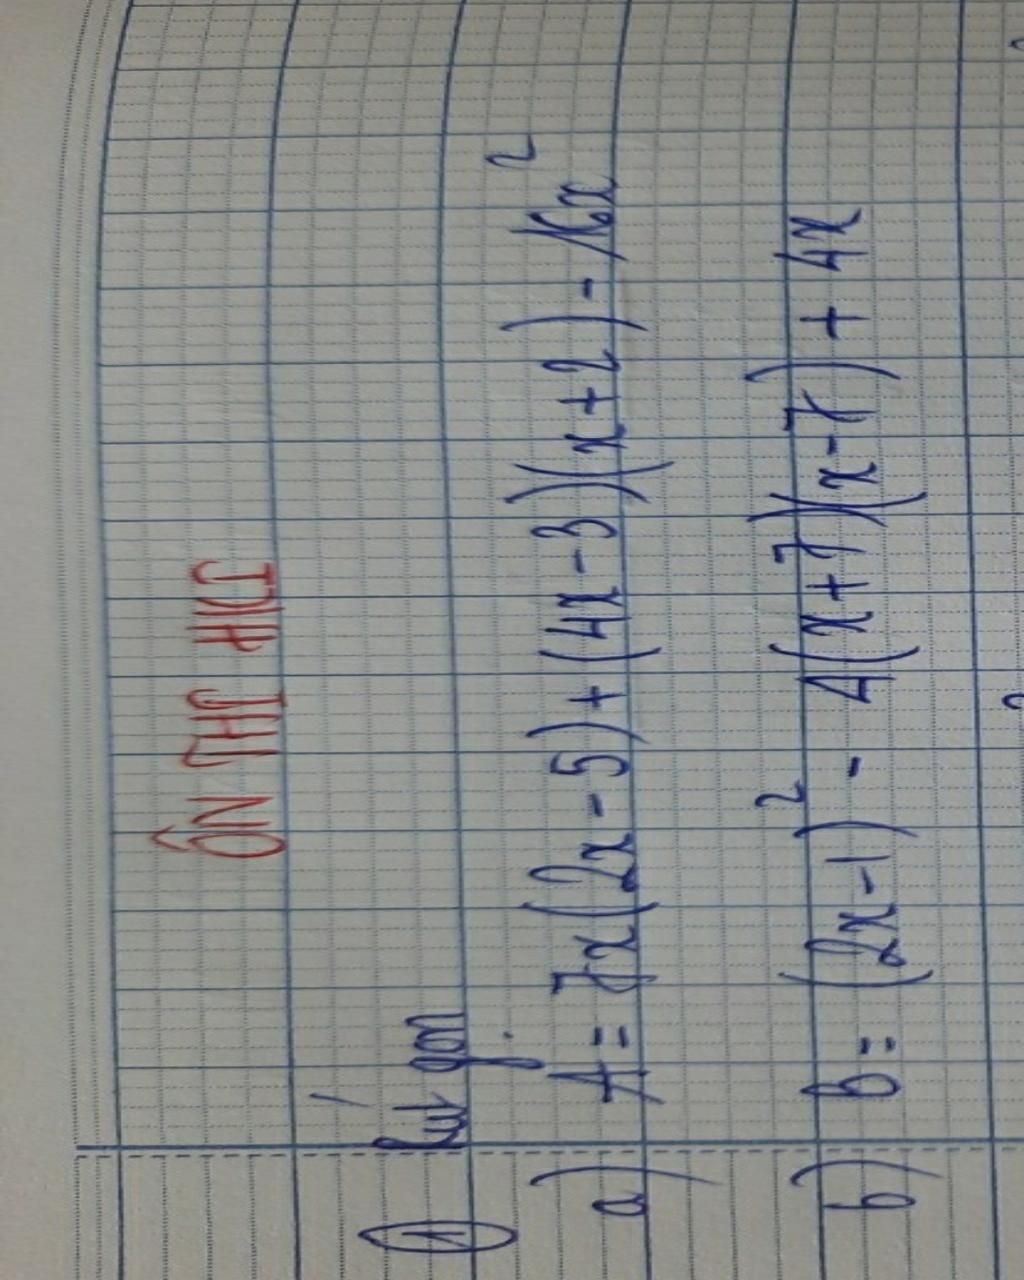 ÔN TẬP HKI
① Rút gọn
a) A = 7x(2x-5)+(4x-3)(x+2)-16x²
b) B = (2x-1)² - 4(x+7)(x-7)+4x